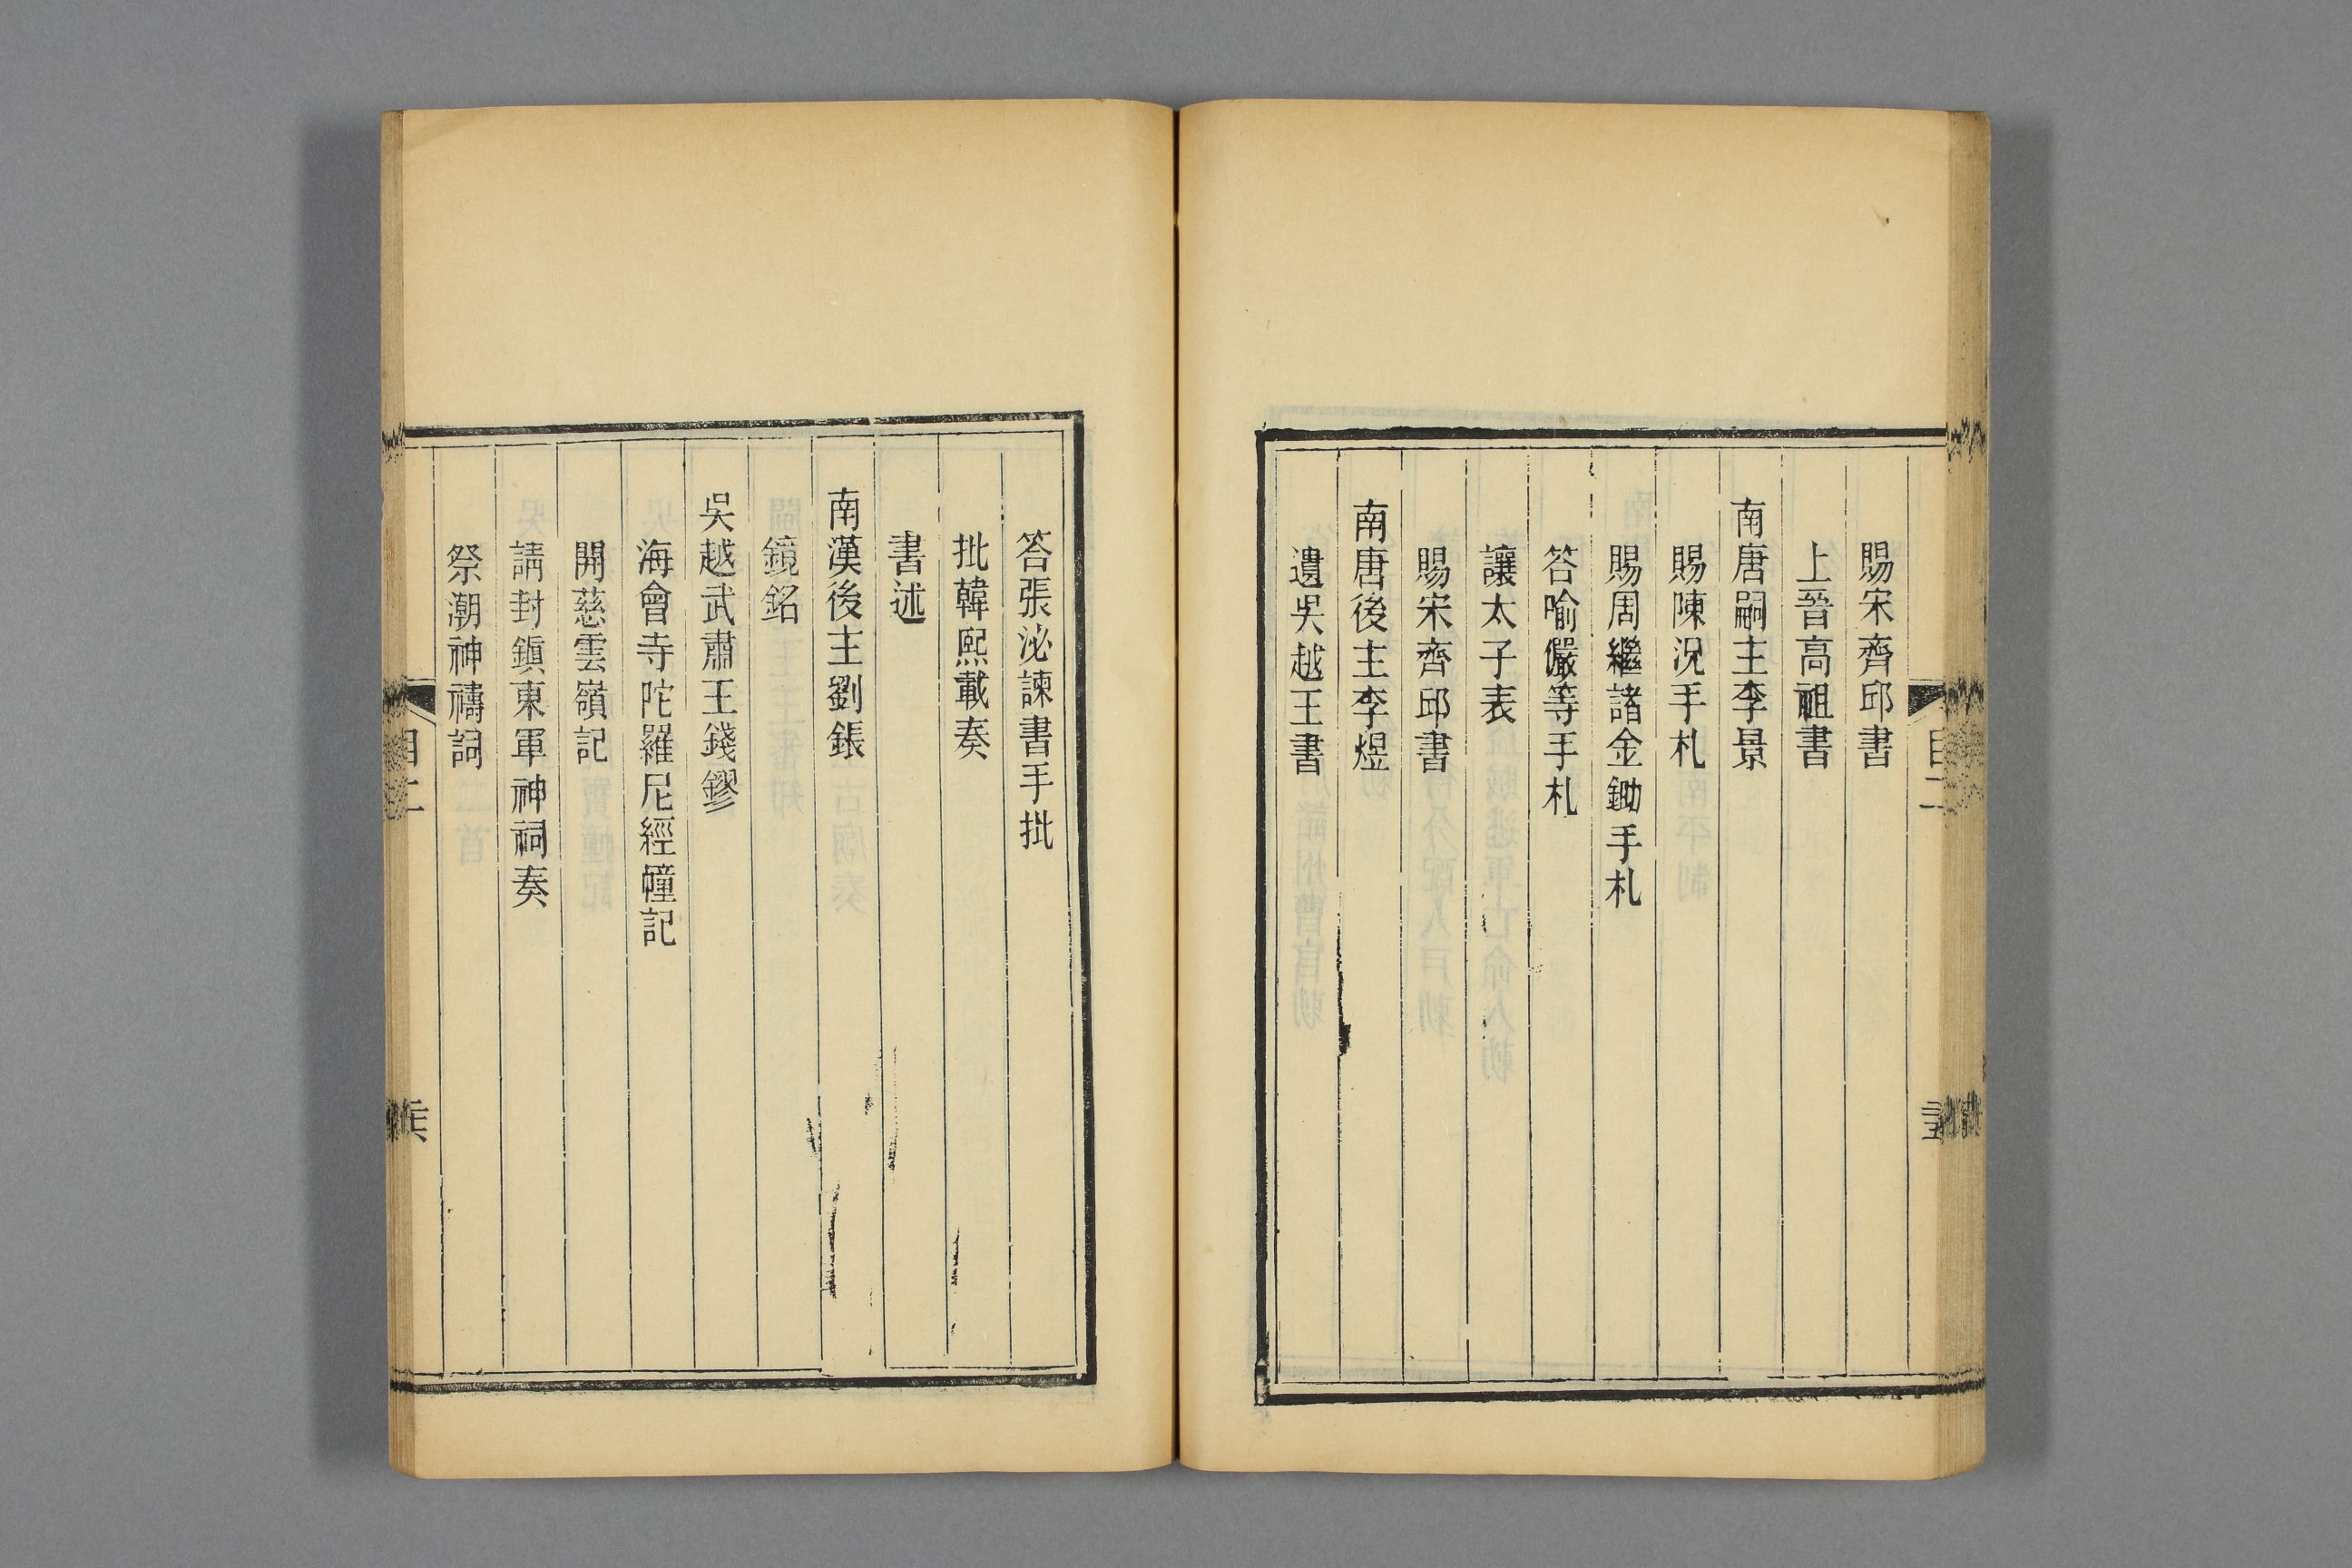 賜宋齊邱書
上晉高祖書
南唐嗣主李景
賜陳況手札
賜周繼諸金鋤手札
答喻儼等手札
讓太子表
賜宋齊邱書
南唐後主李煜
遺吳越王書
答張泌諫書手批
批韓熙載奏
書述
南漢後主劉鋹
鏡銘
吳越武肅王錢鏐
海會寺陀羅尼經幢記
開慈雲嶺記
請封鎮東軍神祠奏
祭潮神禱詞
目二